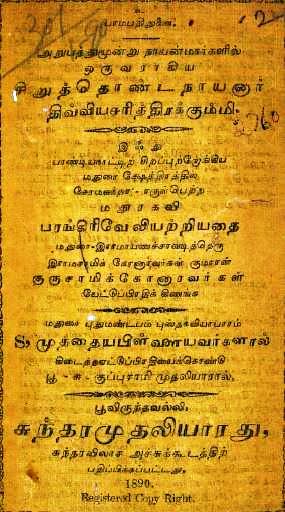 உ
அறுபத்துமூன்று நாயன்மார்களில்
ஒருவராகிய
சிறுத்தொண்டநாயனார்
திவ்வியசரித்திரக்கும்மி.
இஃது
பாண்டியநாட்டிற் சிறப்புற்றோங்கிய
மதுரை க்ஷேத்திரத்தில்
மதுரகவி
பரங்கிரிவேலியற்றியதை
மதுரை-இராமாயணச்சாவடித்தெரு
இராமசாமிக் கோனாரவர்கள் குமாரன்
குருசாமிக்கோனாரவர்கள்
கேட்டுப்பிரதிக் கிணங்க
மதுரை புதுமண்டபம் புஸ்தகவியாபாரம்
S. முத்தையபிள்ளையவர்களால்
பூ - சு - குப்புசாமி முதலியாரால்,
பூவிருந்தவல்லி,
சுந்தரமுதலியாரது,
சுந்தரவிலாச அச்சுக்கூடத்திற்
பதிப்பிக்கப்பட்டது,
1890.
Registered Copy Right.